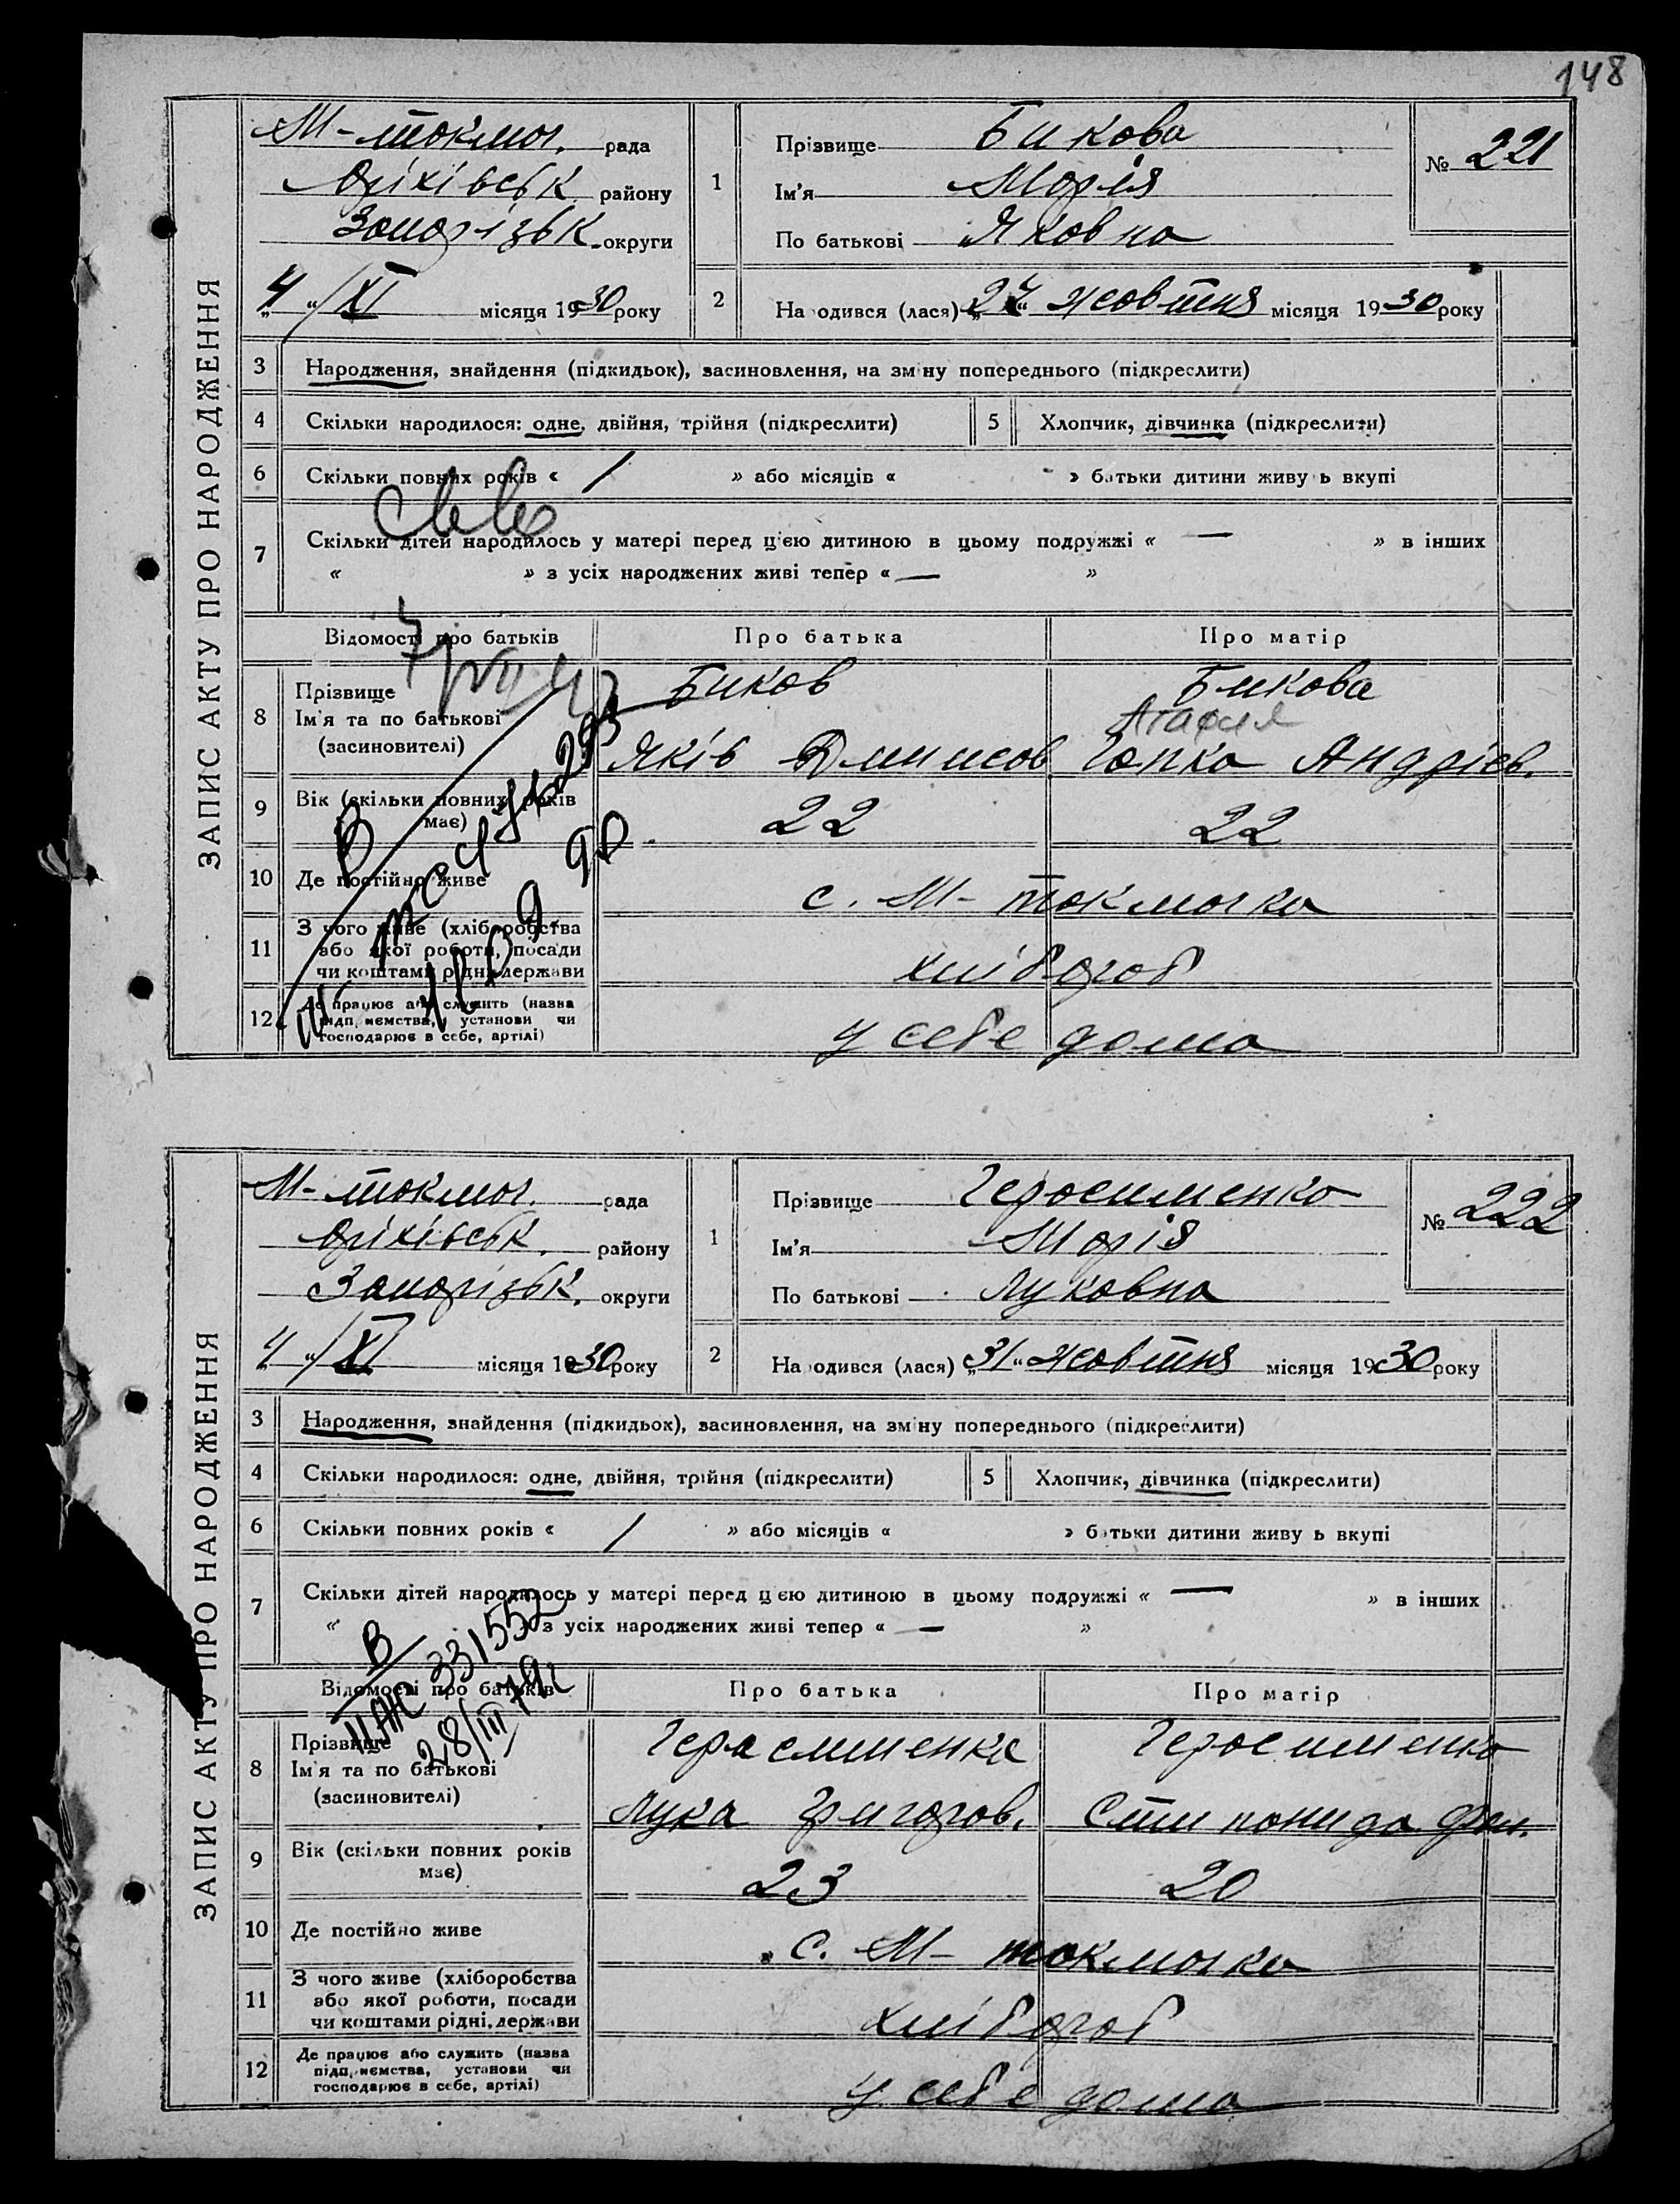 148
ЗАПИС АКТУ ПРО НАРОДЖЕННЯ
М-токмач. рада
Оріхівськ. району
Запорізьк. округи
"4"/XI місяця 1930 року
1
Прізвище Бикова
Ім'я Марія
По батькові Яковна
№ 221
2 Народився (лася) "27" жовтня місяця 1930 року
3 Народження, знайдення (підкидьок), засиновлення, на зміну попереднього (підкреслити)
4 Скільки народилося: одне, двійня, трійня (підкреслити) 5 Хлопчик, дівчинка (підкреслити)
6 Скільки повних років « / » або місяців « » батьки дитини живуть вкупі
7 Скільки дітей народилось у матері перед цією дитиною в цьому подружжі « — » в інших
« » з усіх народжених живі тепер « — »
Відомості про батьків Про батька Про матір
8 Прізвище
Ім'я та по батькові
(засиновителі)
Биков Бикова
Агафия
Яків Денисов. Гапка Андрієв.
9 Вік (скільки повних років має) 22 22
10 Де постійно живе с. М-токмачка
11 З чого живе (хліборобства або якої роботи, посади чи коштами рідні, держави хлібороб
12 Де працює або служить (назва підприємства, установи чи господарює в себе, артілі) у себе дома
В
ЗАПИС АКТУ ПРО НАРОДЖЕННЯ
М-токмач. рада
Оріхівськ. району
Запорізьк. округи
"4"/XI місяця 1930 року
1
Прізвище Герасименко
Ім'я Марія
По батькові Луковна
№ 222
2 Народився (лася) "31" жовтня місяця 1930 року
3 Народження, знайдення (підкидьок), засиновлення, на зміну попереднього (підкреслити)
4 Скільки народилося: одне, двійня, трійня (підкреслити) 5 Хлопчик, дівчинка (підкреслити)
6 Скільки повних років « / » або місяців « » батьки дитини живуть вкупі
7 Скільки дітей народилось у матері перед цією дитиною в цьому подружжі « — » в інших
« » з усіх народжених живі тепер « — »
В
II АЖ 331552
28/III 79г
Відомості про батьків Про батька Про матір
8 Прізвище
Ім'я та по батькові
(засиновителі)
Герасименко Герасименко
Лука Григоров. Степонида
9 Вік (скільки повних років має) 23 20
10 Де постійно живе с. М-токмачка
11 З чого живе (хліборобства або якої роботи, посади чи коштами рідні, держави хлібороб
12 Де працює або служить (назва підприємства, установи чи господарює в себе, артілі) у себе дома